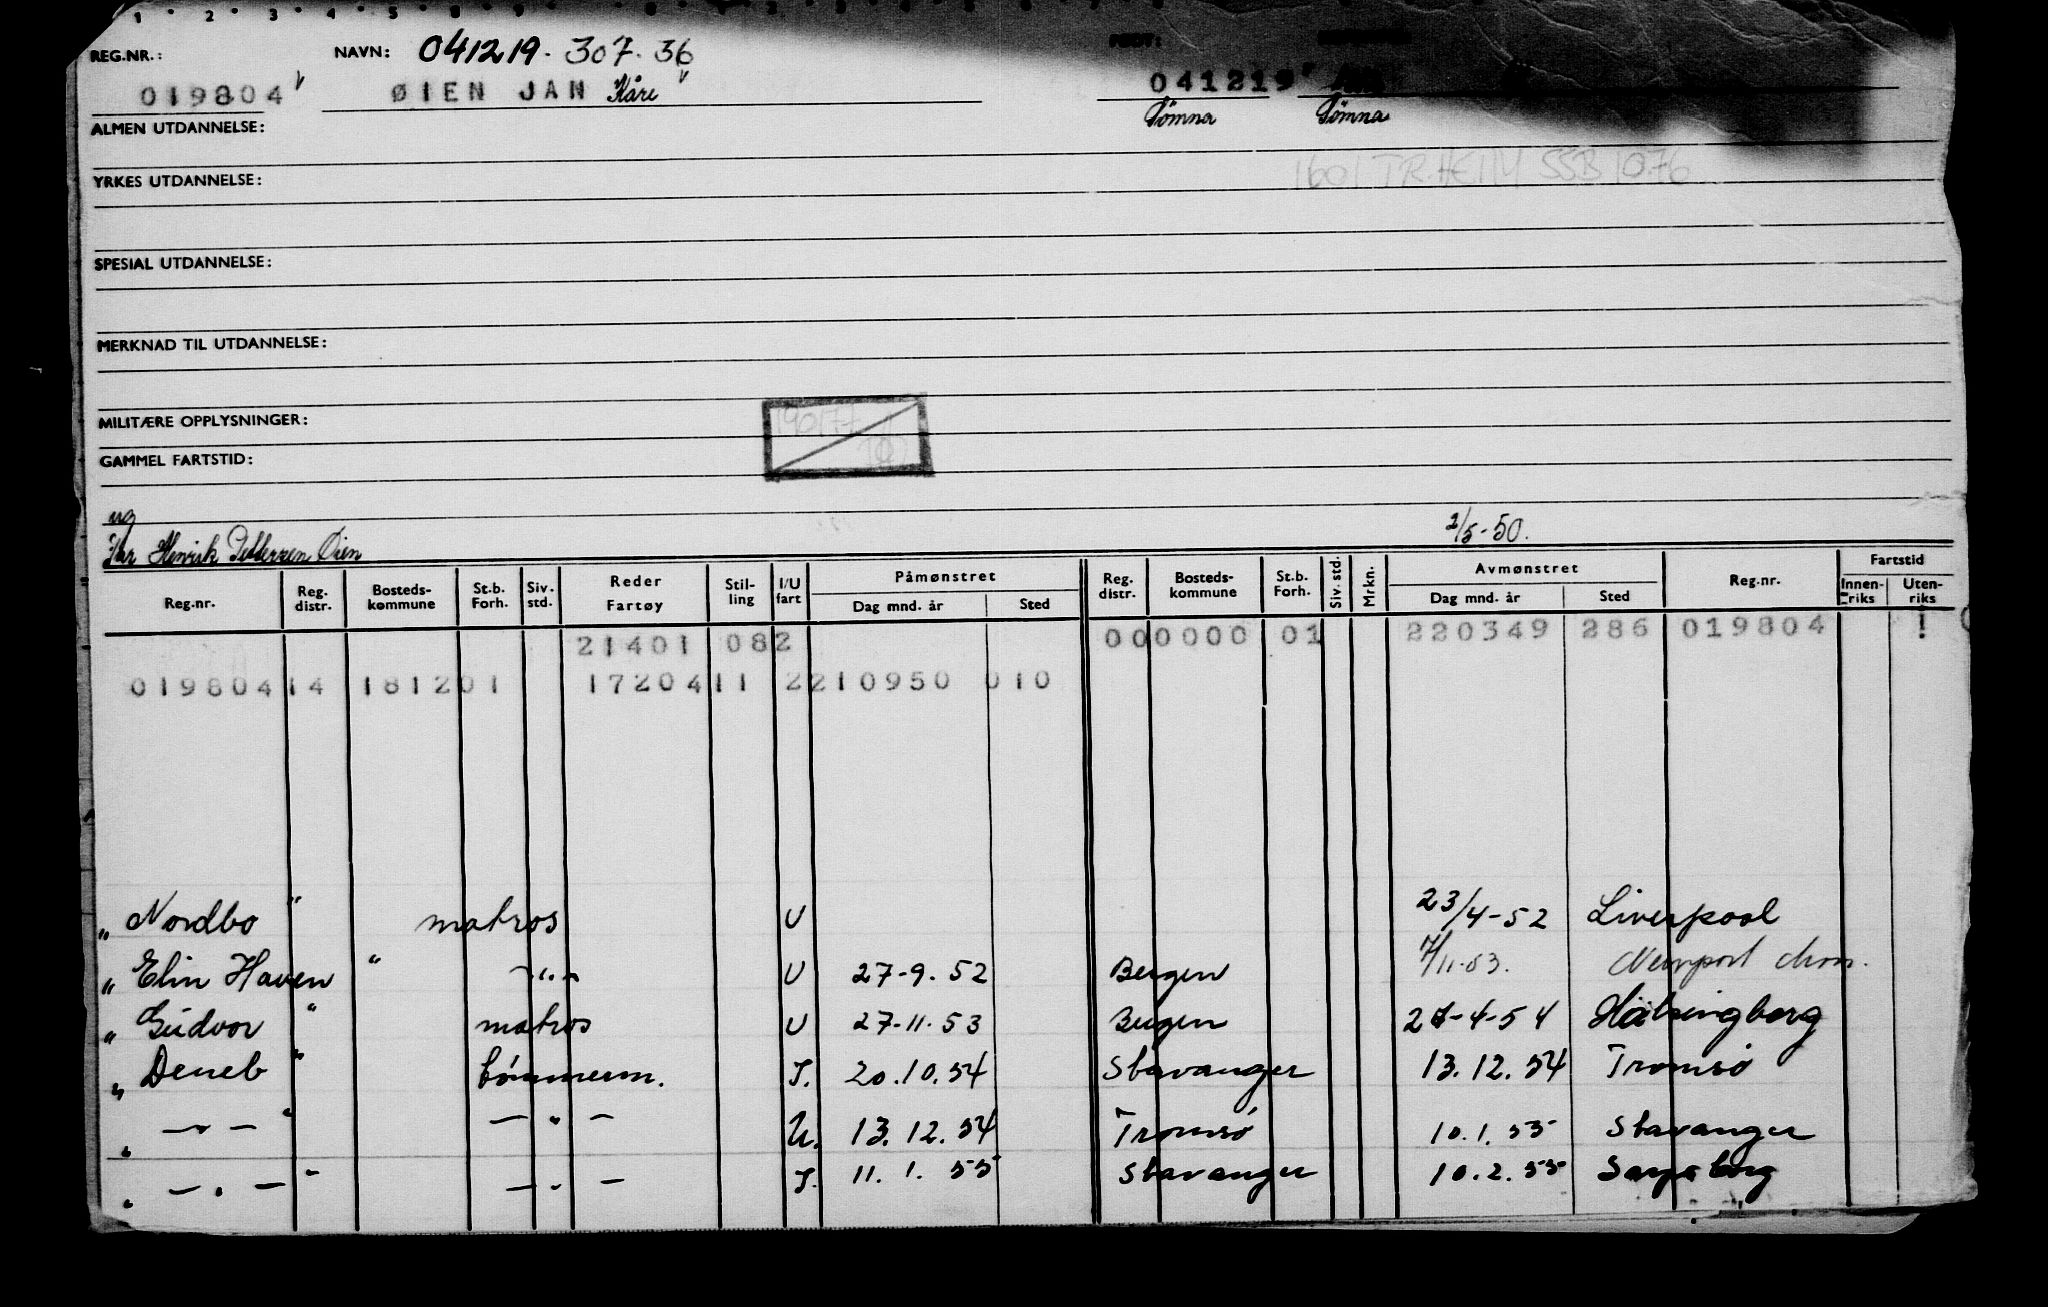 1 · 2 · 3 · 4 · 5 · 6 · 7
REG.NR.: NAVN: 041219-307-36 FØDT:
019804 ØIEN JAN Kåre 041219
Sømna Sømna
ALMEN UTDANNELSE:
1601 TR.HEIM SSB 1076
YRKES UTDANNELSE:
SPESIAL UTDANNELSE:
MERKNAD TIL UTDANNELSE:
MILITÆRE OPPLYSNINGER: 190177
GAMMEL FARTSTID:
ug
Far Henrik Pettersen Øien 2/5-50.
Reg.nr. Reg. distr. Bosteds- kommune St.b. Forh. Siv. std. Reder Fartøy Stil- ling I/U fart Påmønstret Dag mnd. år Sted Reg. distr. Bosteds- kommune St.b. Forh. Siv. std. Mrkn. Avmønstret Dag mnd. år Sted Reg.nr. Fartstid Innen- riks Uten- riks
21401 082 000000 01 220349 286 019804 !
019804 14 181201 1720411 2210950 010
„ Nordbo " matros U 23/4-52 Liverpool
„ Elin Haven " -"- U 27-9.52 Bergen 7/11-53. Newport Mon.
„ Gudvor " matros U 27-11-53 Bergen 27-4-54 Hälsingborg
„ Deneb " tømmerm. I. 20.10.54 Stavanger 13.12.54 Tromsø
„ -"- " -"- U. 13.12.54 Tromsø 10.1.55 Stavanger
„ -"- " -"- I. 11.1.55 Stavanger 10.2.55 Sarpsborg